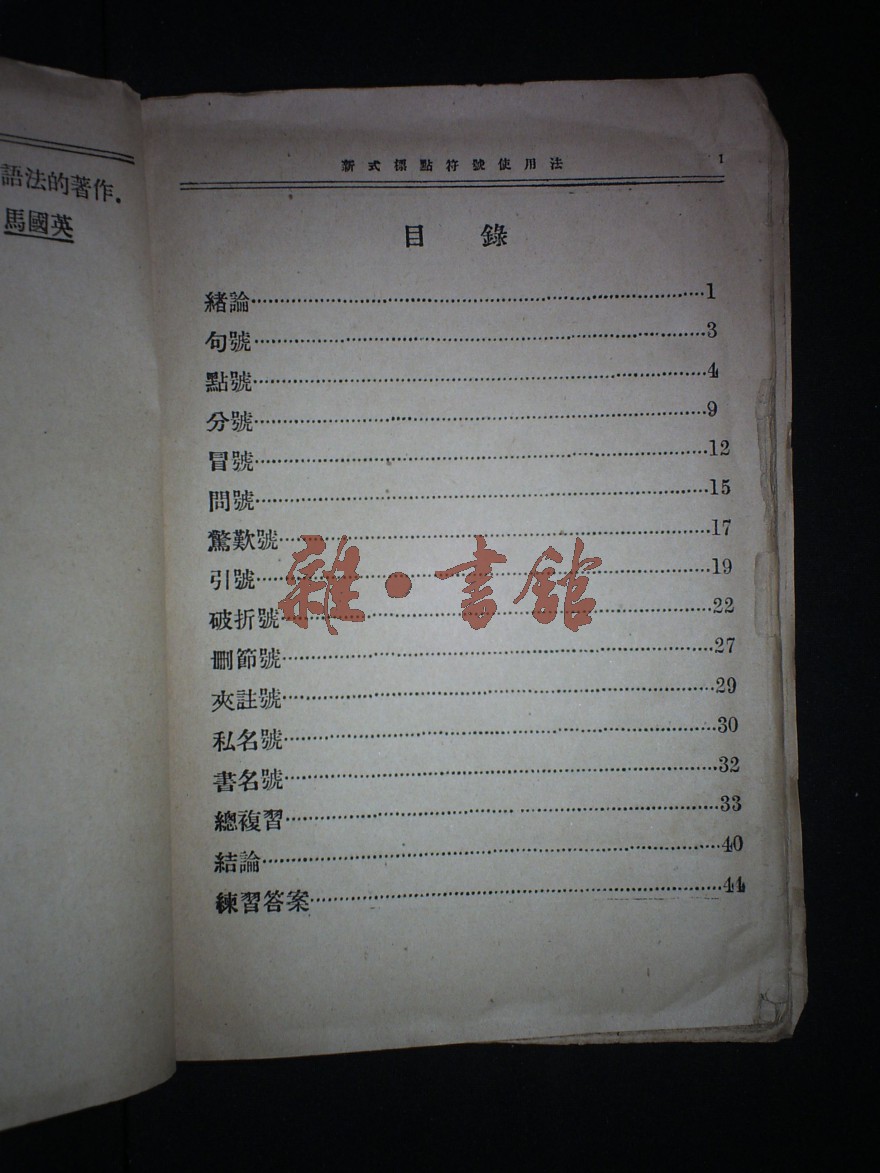 語法的著作.
馬國英
新式標點符號使用法 1
目錄
緒論……1
句號……3
點號……4
分號……9
冒號……12
問號……15
驚歎號……17
引號……19
破折號……22
刪節號……27
夾註號……29
私名號……30
書名號……32
總複習……33
結論……40
練習答案……44
雜·書館